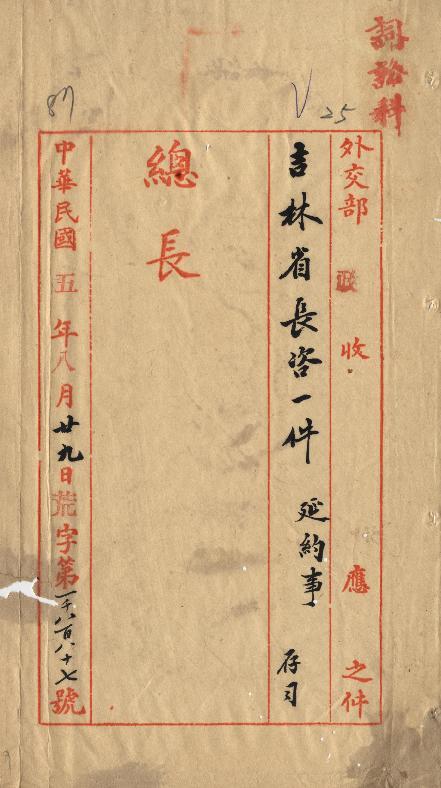 詞訟科
25
87
外交部 收 應 之件
吉林省長咨一件 延約事 存司
總長
中華民國五年八月廿九日荒字第一千八百八十七號